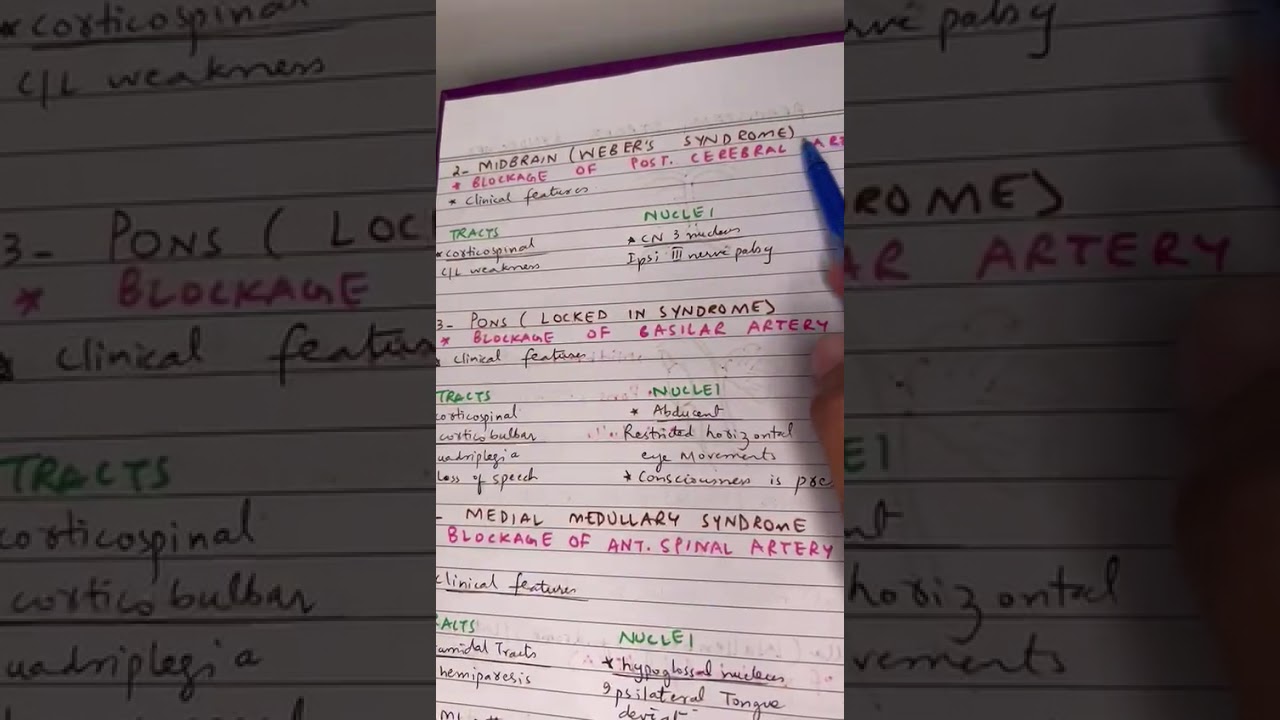 2- MIDBRAIN (WEBER'S SYNDROME)
* BLOCKAGE OF POST. CEREBRAL ART
* Clinical features
TRACTS NUCLEI
*corticospinal * CN 3 nucleus
C/L weakness Ipsi III nerve palsy
3- PONS ( LOCKED IN SYNDROME)
* BLOCKAGE OF BASILAR ARTERY
* Clinical features
TRACTS NUCLEI
corticospinal * Abducent
corticobulbar Restricted horizontal
uadriplegia eye Movements
Loss of speech * Consciousness is pre
- MEDIAL MEDULLARY SYNDROME
BLOCKAGE OF ANT. SPINAL ARTERY
Clinical features
RACTS NUCLEI
amidal Tracts * hypoglossal nucleus
hemiparesis Ipsilateral Tongue
deviat